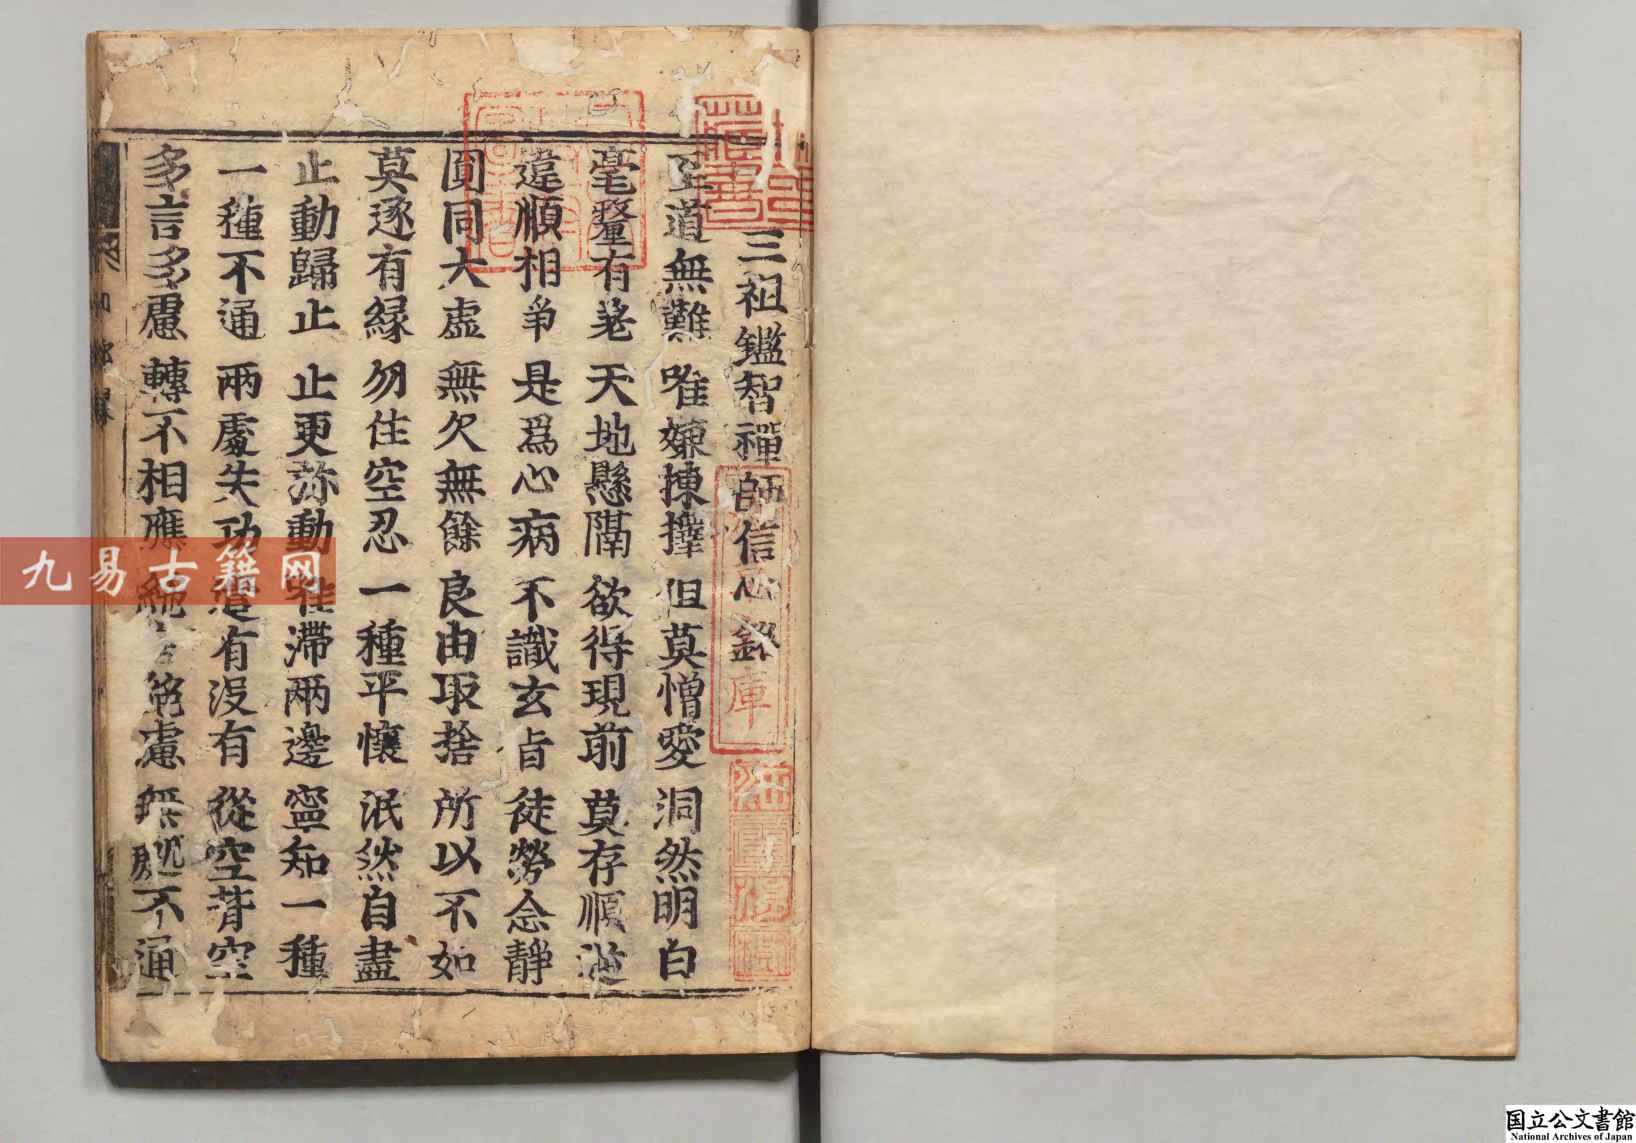 三祖鑑智禪師信心銘
至道無難 唯嫌揀擇 但莫憎愛 洞然明白
毫釐有差 天地懸隔 欲得現前 莫存順逆
違順相爭 是爲心病 不識玄旨 徒勞念靜
圓同大虛 無欠無餘 良由取捨 所以不如
莫逐有緣 勿住空忍 一種平懷 泯然自盡
止動歸止 止更弥動 唯滯兩邊 寧知一種
一種不通 兩處失功 遣有沒有 從空背空
多言多慮 轉不相應 絶言絶慮 無處不通
庫
九易古籍网
国立公文書館
National Archives of Japan